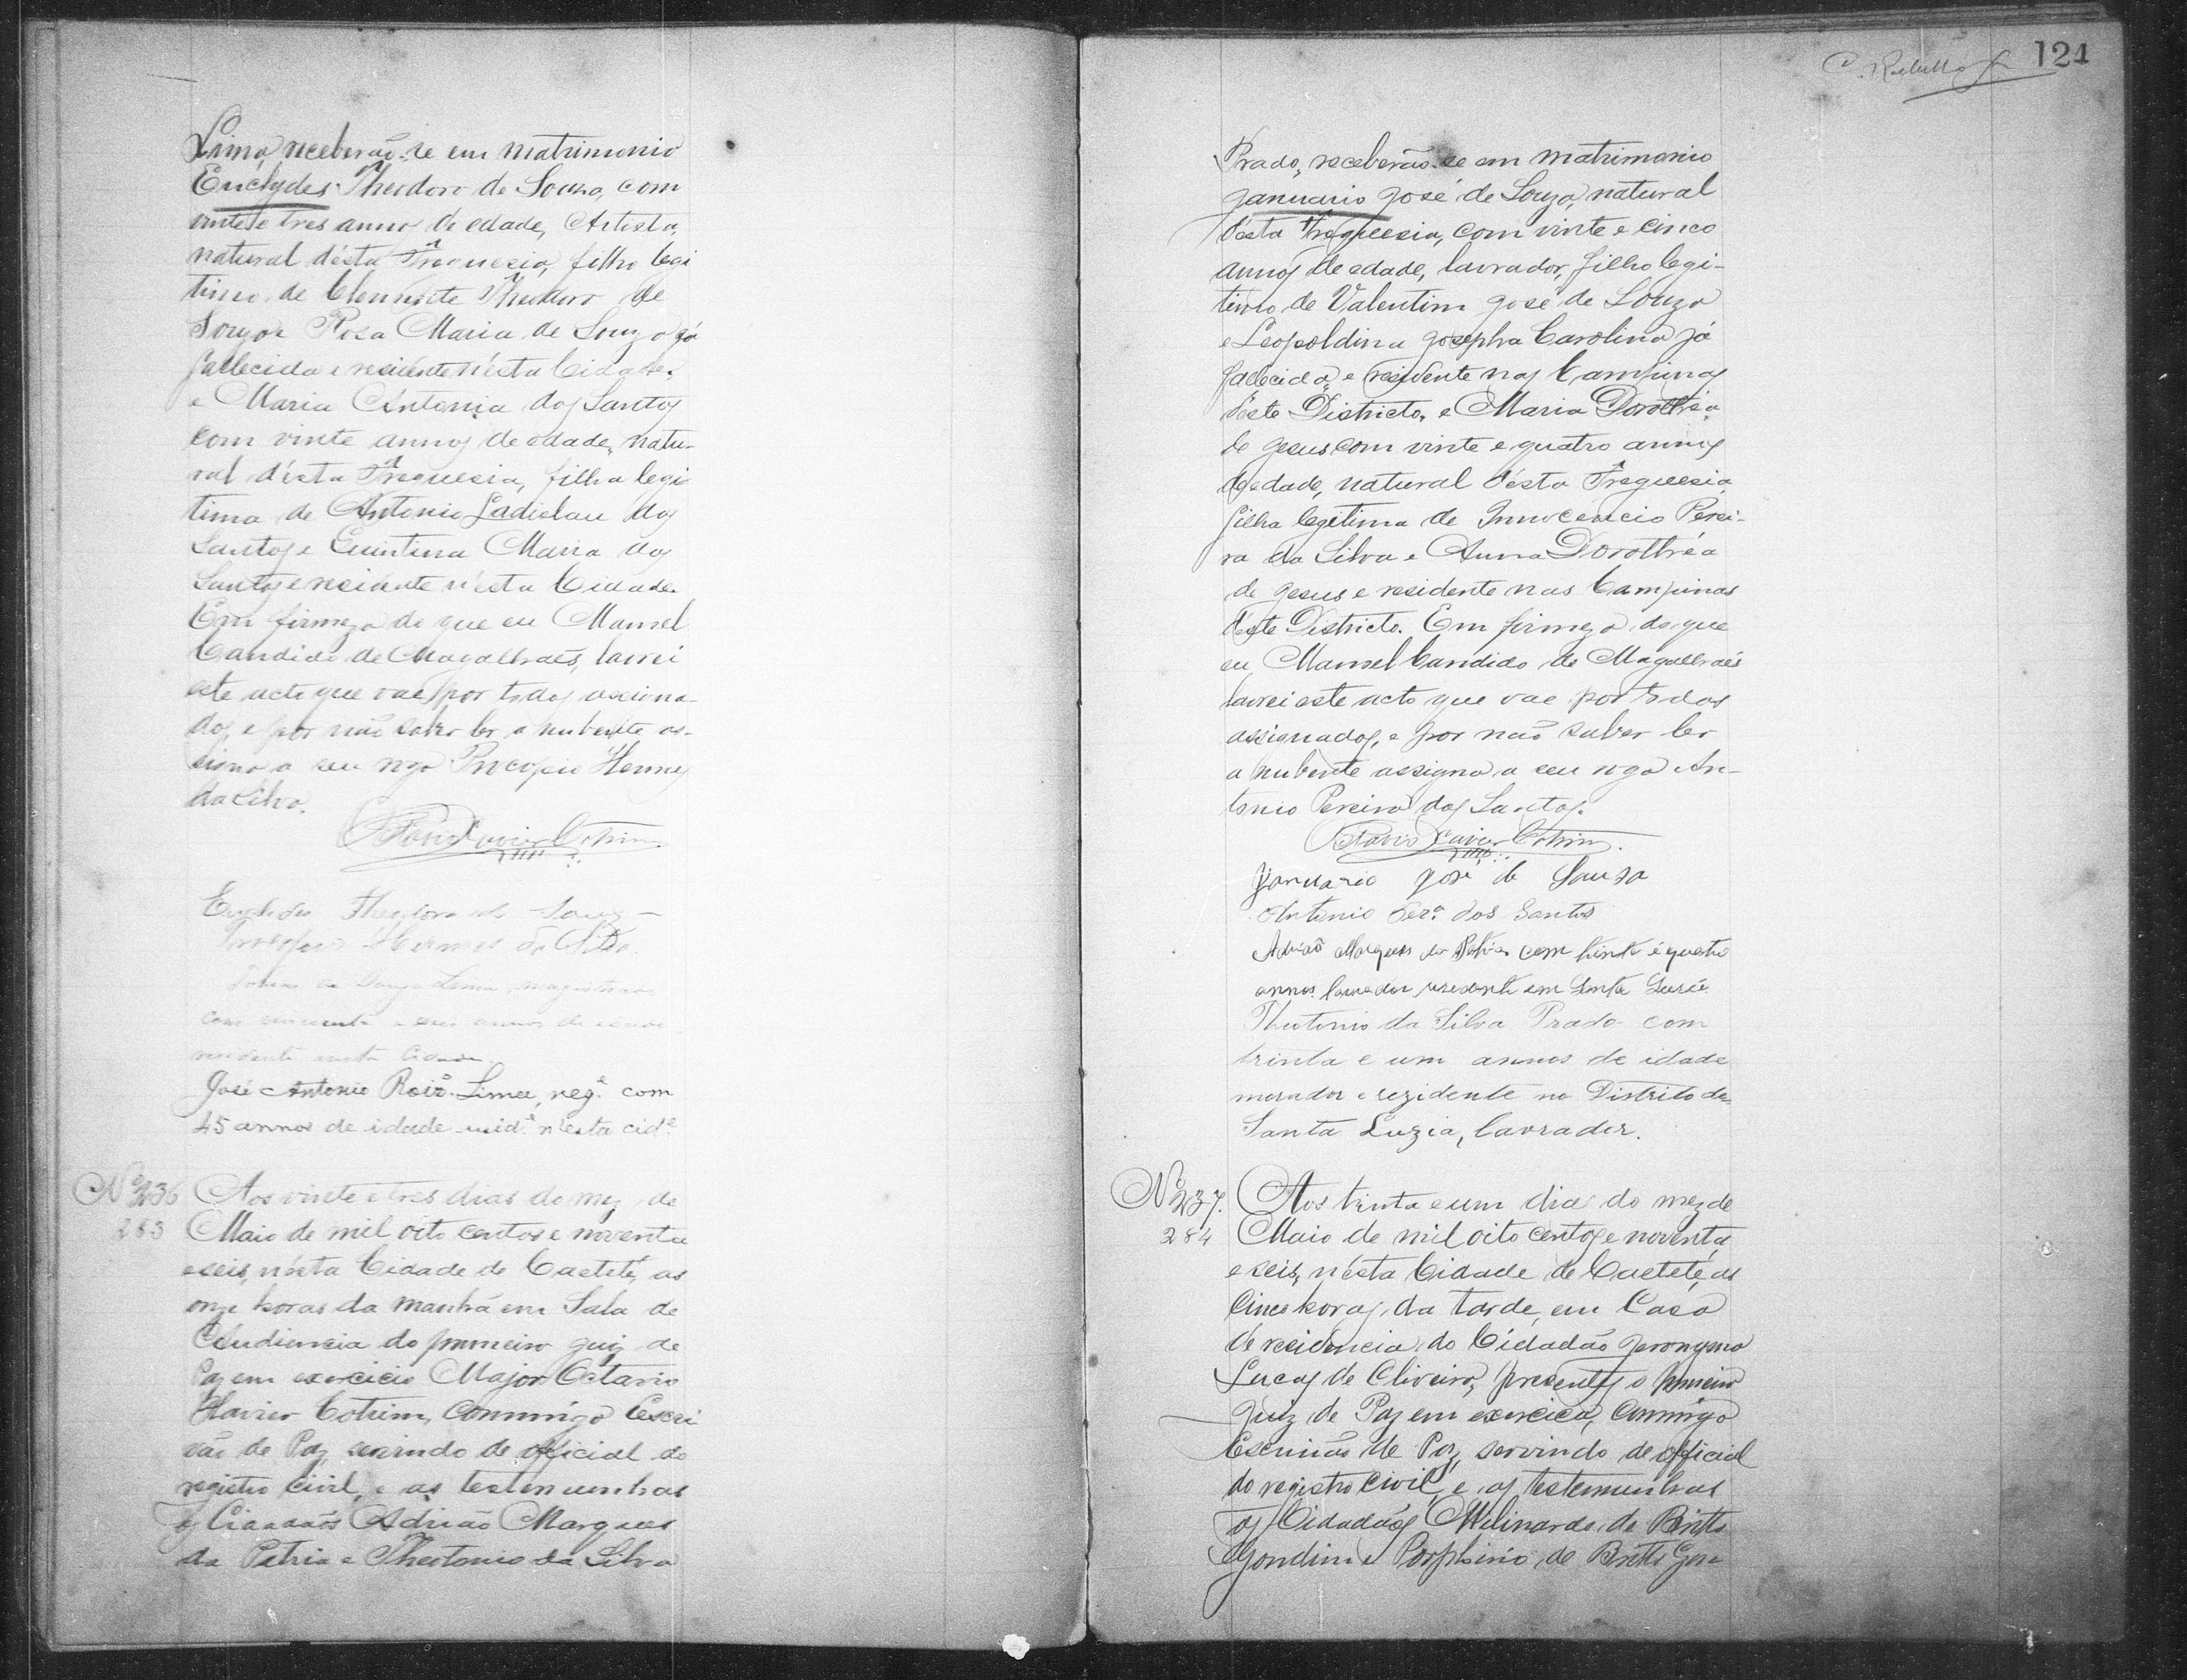 Lima, receberão-se em matrimonio
Euclydes Theodoro de Souza, com
vinte e tres annos de edade, Artista,
natural désta Freguesia, filho legi
timo de Clemente Theodoro de
Souza e Rosa Maria de Souza já
fallecida e residente n'ésta Cidade.
e Maria Antonia dos Santos
com vinte annos de edade, natu-
ral d'ésta Freguesia, filha legi
tima de Antonio Ladislau dos
Santos e Quintina Maria dos
Santos e residente n'ésta Cidade.
Em firmeza do que eu Manoel
Candido de Magalhaēs, lavrei
este acto que vae por todos assigna-
dos, e por não saber ler a nubente as-
signa a seu rogo Procopio Hermes
da Silva.
Octavio Xavier Cotrim.
Euclides Theodoro de Souza
Procopio Hermes da Silva
de Souza Lima, magistrado
com cincoenta e seis annos de idade
residente nesta Cidade.
José Antonio Roiz. Lima, neg.e com
45 annos de idade resid.e n'esta cid.e
Nº 236 Aos vinte e tres dias do mez de
283 Maio de mil oito centos e noventa
e seis, n'ésta Cidade de Caeteté, as
onze horas da manhá em Sala de
Audiencia do primeiro Juiz de
Paz em exercicio Major Octavio
Xavier Cotrim, commigo Escri
vão de Paz, servindo de official do
registro Civil, e as testemunhas
os Cidadãos Adrião Marques
da Patria e Theotonio da Silva
124
C. Rebello
Prado, receberão-se em matrimonio
Januario José de Souza, natural
d'ésta Freguesia, com vinte e cinco
annos de edade, lavrador, filho legi-
timo de Valentim José de Souza
e Leopoldina Josepha Carolina já
fallecida, e residente nas Campinas
d'éste Districto, e Maria Dorothéa
de Jesus com vinte e quatro annos
de edade, natural d'ésta Freguesia
filha legitima de Innocencio Perei-
ra da Silva e Anna Dorothéa
de Jesus e residente nas Campinas
d'éste Districto. Em firmeza do que
eu Manoel Candido de Magalhaēs
lavrei este acto que vae por todos
assignados, e por não saber ler
a nubente assigna a seu rogo An-
tonio Pereira dos Santos.
Octavio Xavier Cotrim.
Januario José de Souza
Antonio Per.a dos Santos
Adrião Marques da Patria com trinta e quatro
annos lavrador residente em Santa Luzia
Theotonio da Silva Prado com
trinta e um annos de idade
morador e rezidente no Distrito de
Santa Luzia, lavrador.
Nº 237. Aos trinta e um dia do mez de
284 Maio de mil oito centos e noventa
e seis, n'ésta Cidade de Caeteté, as
cinco horas da tarde, em Casa
de residencia do Cidadão Jeronymo
Lucas de Oliveira, presentes o primeiro
Juiz de Paz em exercicio, commigo
Escrivão de Paz, servindo de official
do registro Civil, e as testemunhas
os Cidadãos de Britto
Gondim e Porphirio de Britto Gon